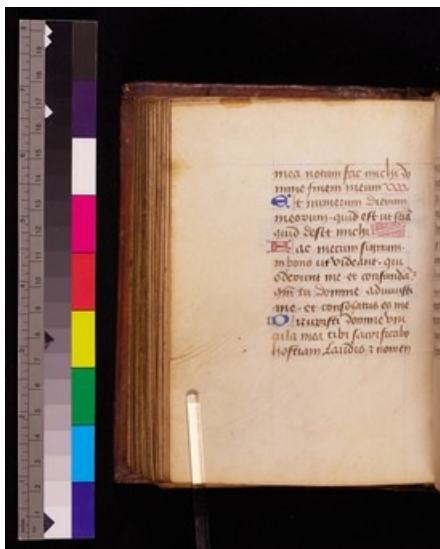 mea notam fac michi do
mine finem meum
Et numerum dierum
meorum · quid est ut scia
quid desit michi
Fac mecum signum
in bono ut videant · qui
oderunt me · et confunda
qm̄ tu domine adiuvisti
me · et consolatus es me
Dirupisti domine vin
cula mea tibi sacrificabo
hostiam laudis ⁊ nomen